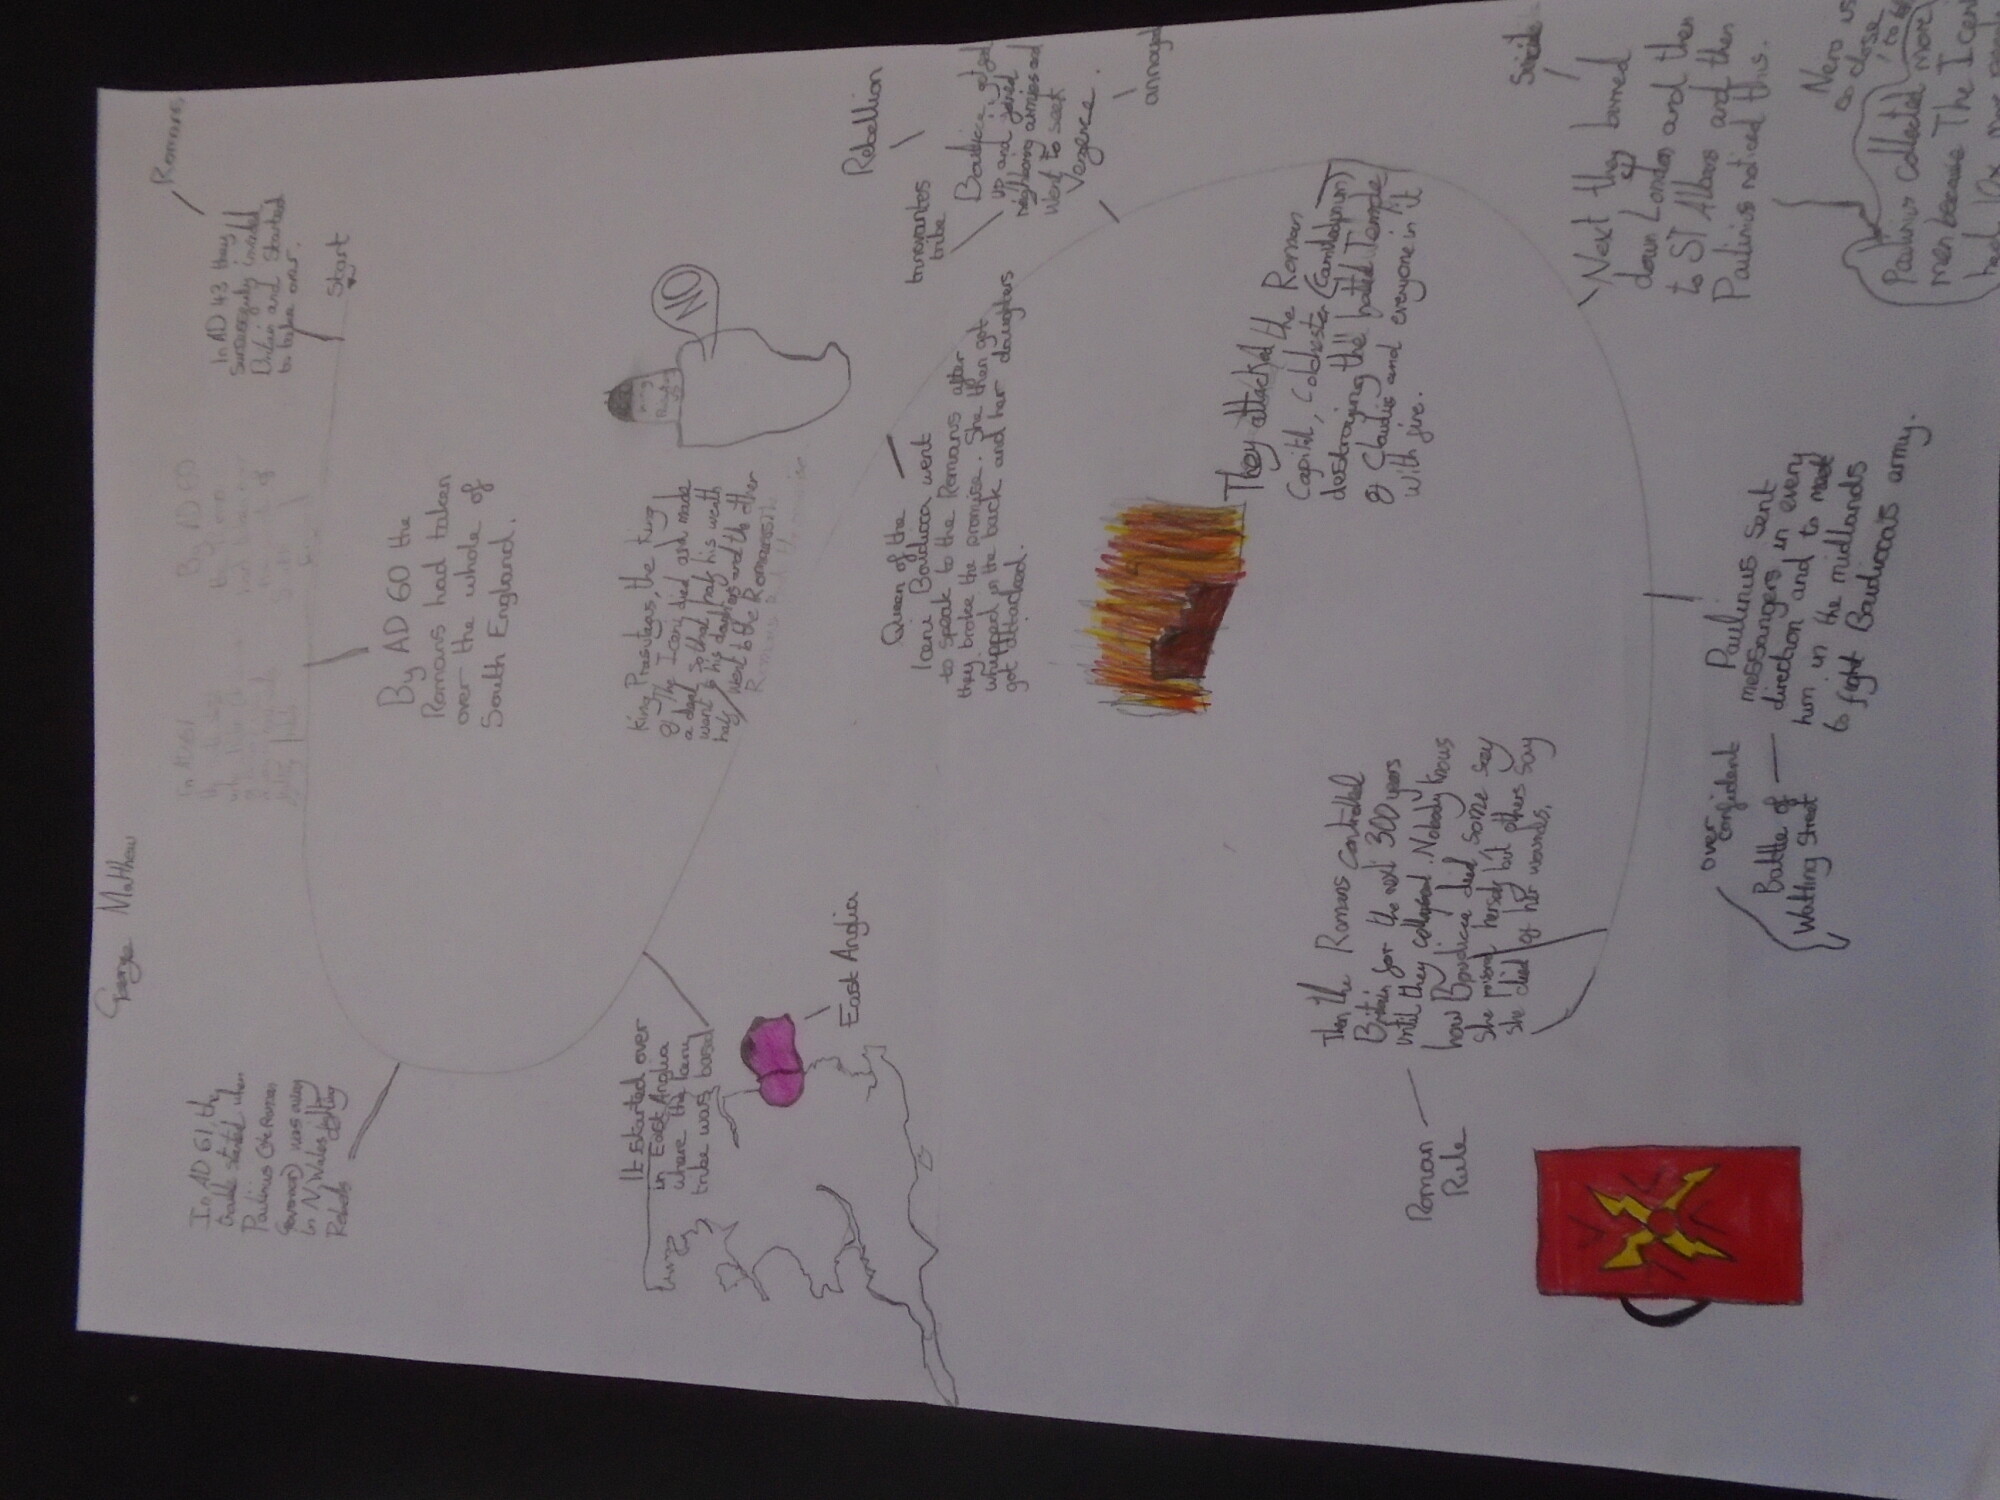 George Matthew
Romans
In AD 43 they
Successfully invaded
Britain and started
to take over.
Start
By AD 60 the
Romans had taken
over the whole of
South England.
In AD 61, the
trouble started when
Paulinus (the Roman
Governor) was away
in N Wales
Rebels
It started over
in East Anglia
where the Iceni
tribe was based
East Anglia
King Prasutagas, the king
of the Iceni died and made
a deal so that half his wealth
went to his daughters and the other
half went to the Romans
NO
Queen of the
Iceni Baudicca went
to speak to the Romans after
they broke the promise. She then got
whipped in the back and her daughters
got attacked.
Rebellion
trinovantes
tribe
Boudicca got
up and joined
neighboring armies and
went to seek
Vengence.
annoyed
They attacked the Roman
Capital, Colchester (Camulodunum)
destroying the hated Temple
of Claudis and everyone in it
with fire.
Suicide
Next they burned
down London and then
to ST Albans and then
Paulinus noticed this.
Nero
to close
Paulinus collected more
men because The
had 10x
Paulinus Sent
messangers in every
direction and to meet
him in the midlands
to fight Baudiccas army.
over
confident
Battle of
Watling Street
Then the Romans Controlled
Britain for the next 300 years
until they collapsed. Nobody knows
how Boudicca died some say
she poisoned herself but others say
she died of her wounds.
Roman
Rule